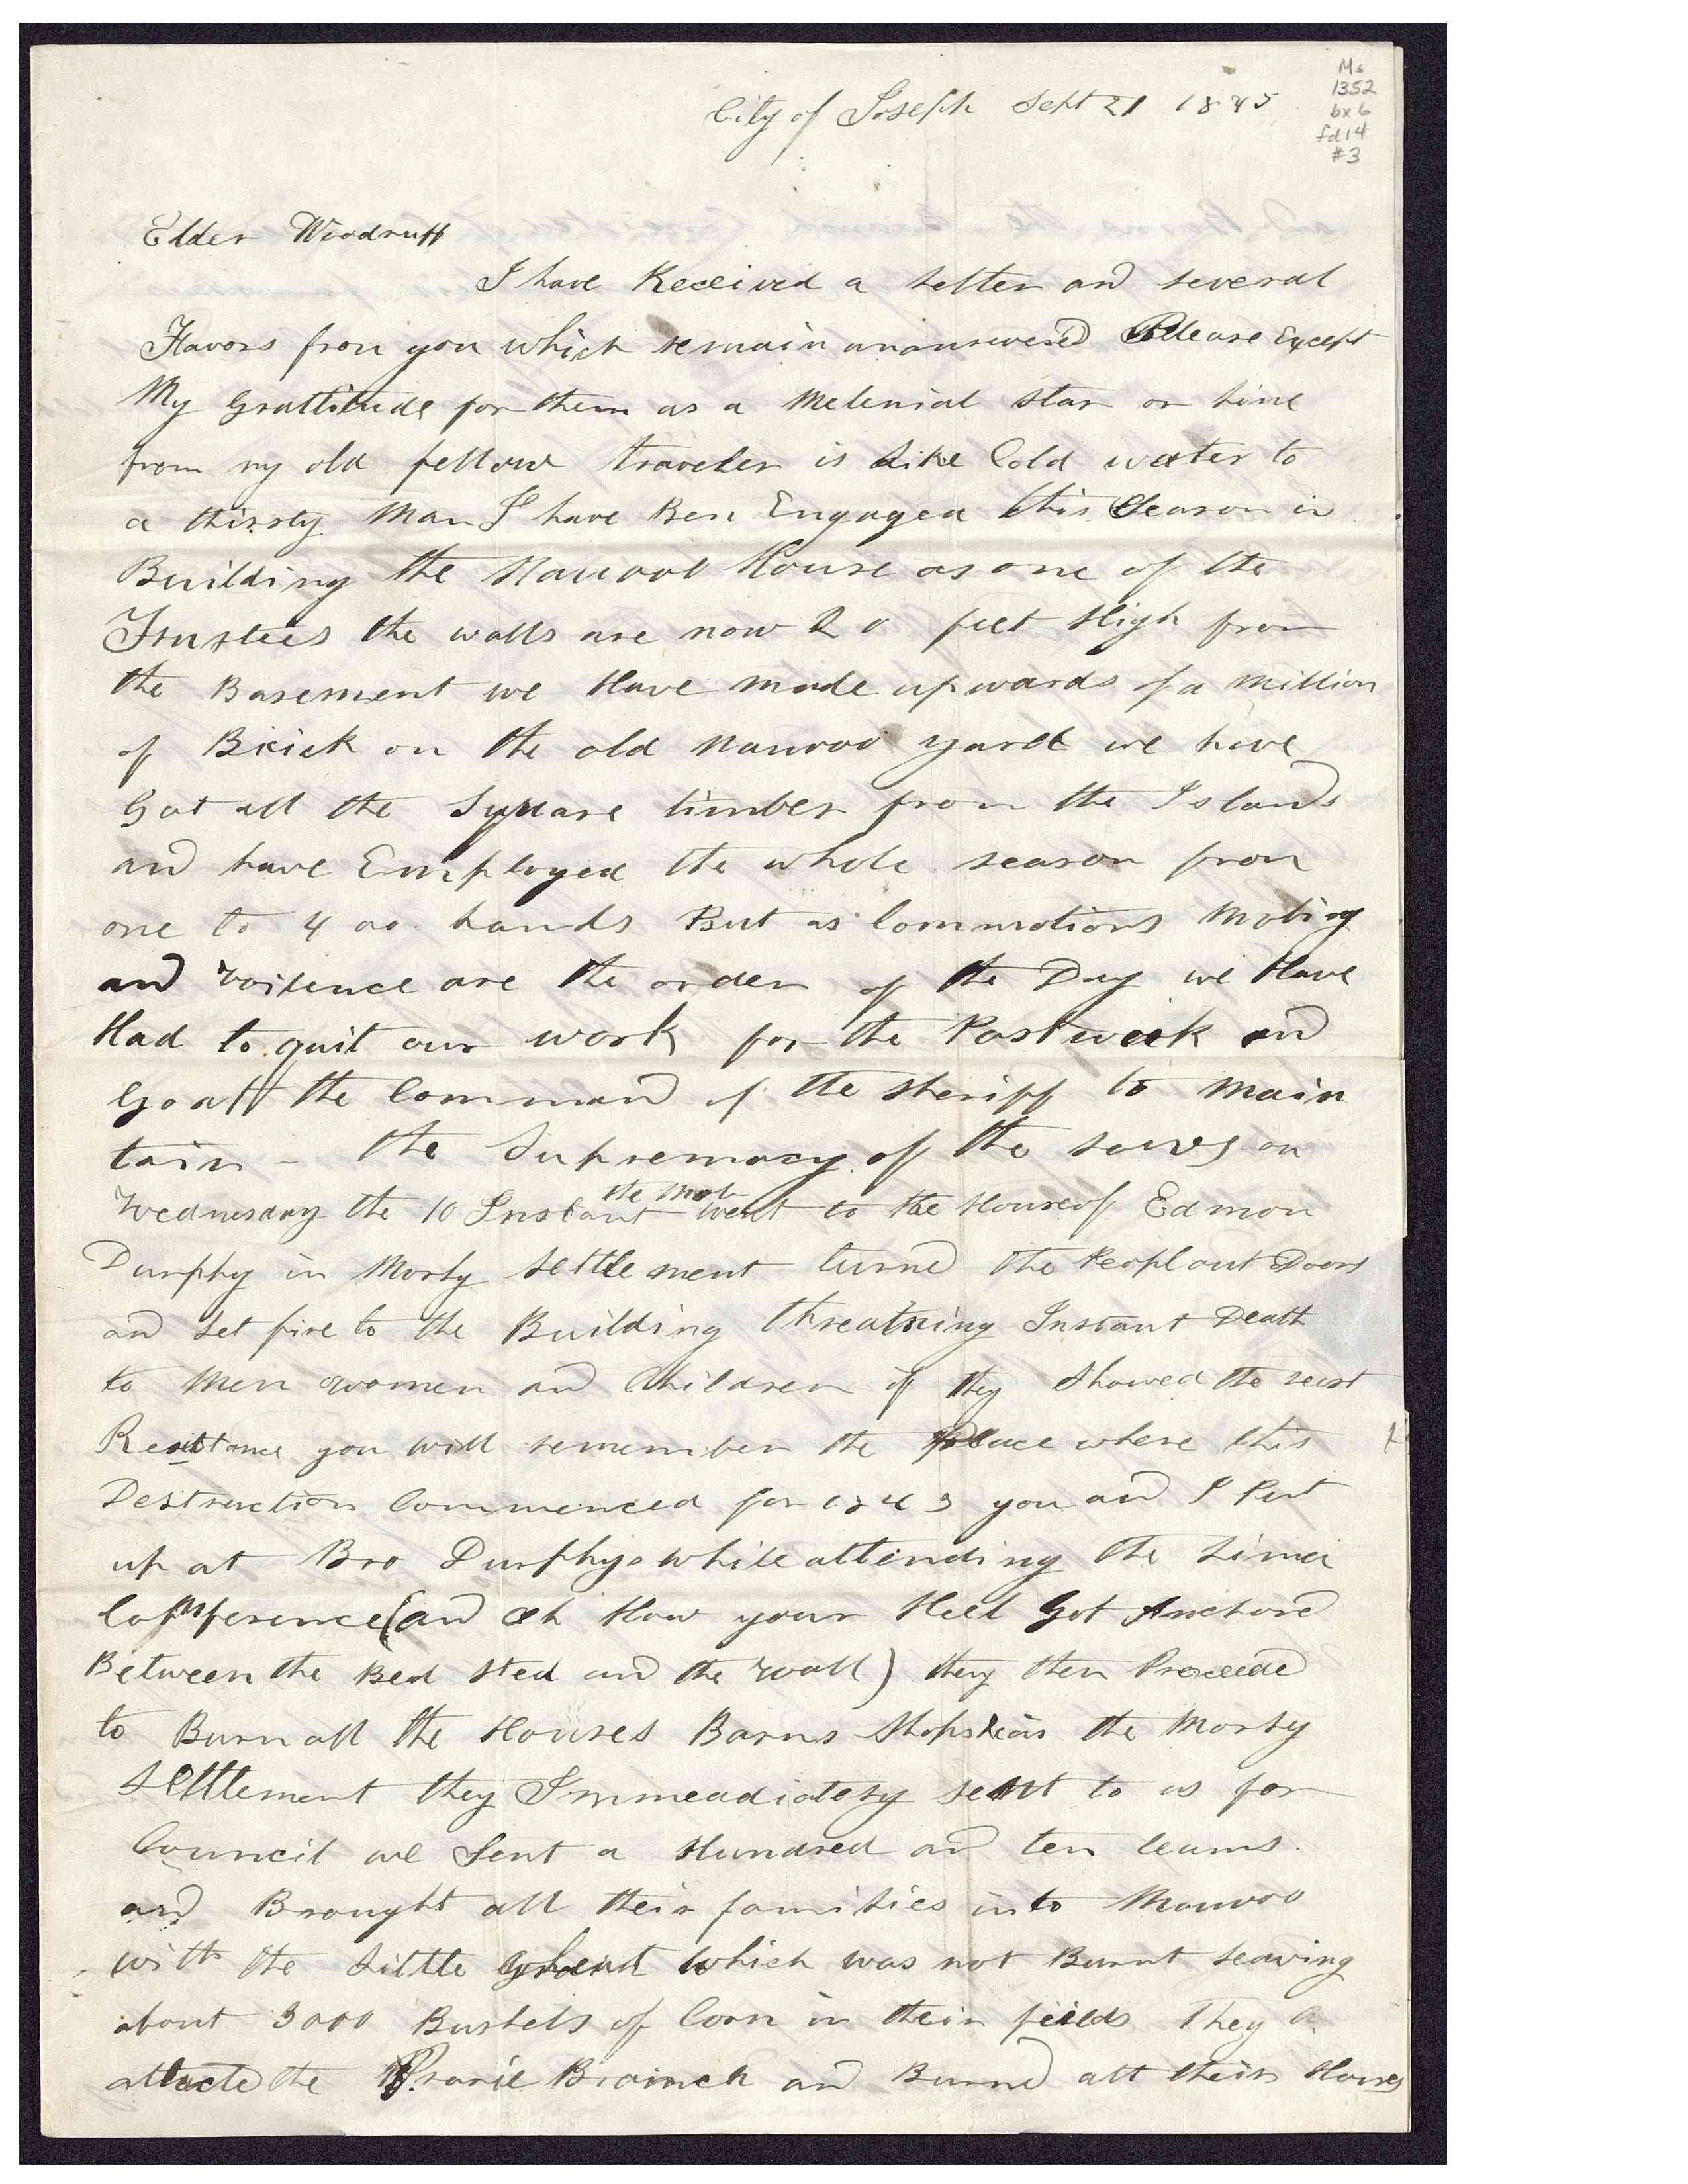 Ms
1352
bx 6
fd 14
#3
City of Joseph Sept 21 1845
Elder Woodruff
I have Received a Letter and several
Favors from you which remain unanswered Please Except
My Grattitude for them as a Melenial Star or Line
from my old fellow traveler is Like Cold water to
a thirsty Man I have Ben Engaged this Season in
Building the Nauvoo House as one of the
Trustees the walls are now 20 feet High from
the Basement we Have made upwards of a Million
of Brick on the old Nauvoo yard we have
Got all the Square timber from the Islands
and have Employed the whole season from
one to 400 hands But as Commotions Mobing
and Voilence are the order of the Day we Have
Had to quit our work for the Past week and
Go att the Command of the Sheriff to Main
tain - the Supremacy of the Laws on
Wednesday the 10 Instant the Mob went to the House of Edmon
Durphy in Morly Settlement turned the Peopl out Doors
and Set fire to the Building threatning Instant Death
to Men women and Children if they Showed the Least
Resistance you will remember the Place where this
Destruction Commenced for 1843 you and I Put
up at Bro Durphys while attending the Lima
Conference (and oh How your Heel Got Anchord
Between the Bed Sted and the Wall) they then Proceded
to Burn all the Houses Barns Shops in the Morly
Settlement they Immeadiately sent to us for
Council we Sent a Hundred and ten teams.
and Brought all their families into Nauvoo
with the Little which was not Burnt Leaving
about 3000 Bushels of Corn in their feilds They
attacted the Prarie Brainch and Burned all their Houses